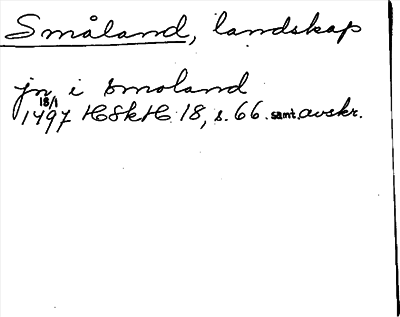 Småland, landskap
jn i Smoland
18/1
1497 HSkH 18, s. 66. samt. avskr.